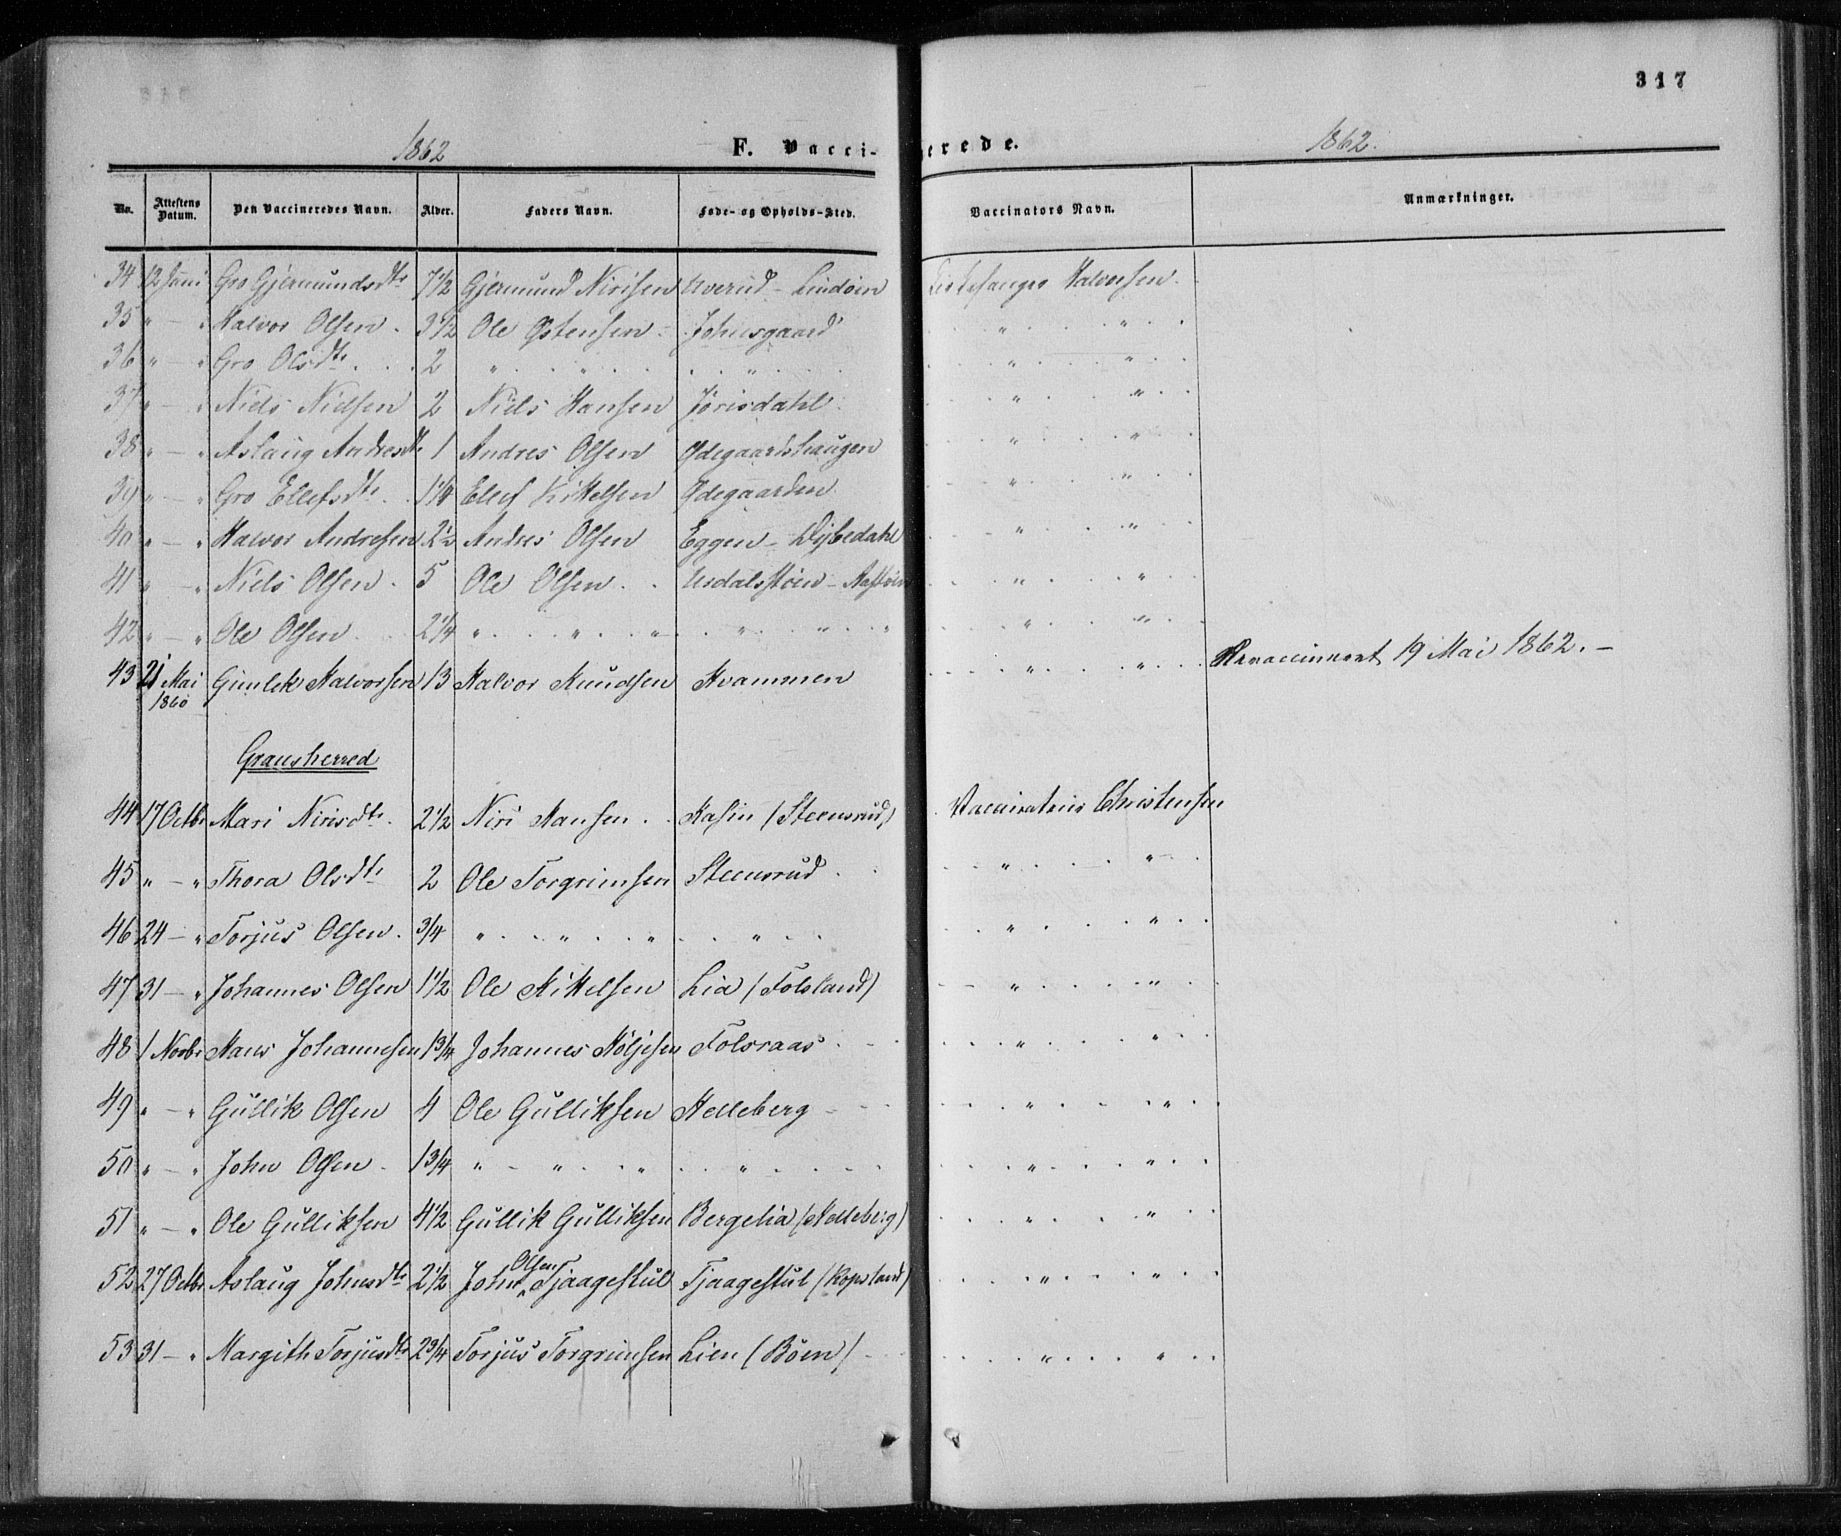 317
1862 F. Vaccinerede. 1862.
No. Attestens Datum. Den Vaccineredes Navn. Alder. Faders Navn. Føde- og Opholds-Sted. Vaccinators Navn. Anmærkninger.
34 12 Juni Gro Gjermundsdtr 7 1/2 Gjermund Nirisen Uverud - Lindöen Kirkesanger Halvorsen.
35 " - " Halvor Olsen. 3 1/2 Ole Østensen Johnsgaard " "
36 " - " Gro Olsdtr. 2 " " " " "
37 " - " Niels Nielsen 2 Niels Hansen Jörisdahl " "
38 " - " Aslaug Andresdtr 1 Andres Olsen Ødegaardshaugen " "
39 " - " Gro Ellefsdtr. 1 1/4 Ellef Kittelsen Ødegaarden " "
40 " - " Halvor Andresen 2 1/2 Andres Olsen Eggen - Dybedahl " "
41 " - " Niels Olsen. 5 Ole Olsen. " "
42 " - " Ole Olsen 2 1/4 " " " " " " " "
43 21 Mai 1860 Gunlek Halvorsen 13 Halvor Knudsen Kvammen " " Revaccineret 19 Mai 1862. -
Gransherred
44 17 Octbr Mari Nirisdtr. 2 1/2 Niri Hansen. Kasin (Steensrud) Vaccinatrice Christensen
45 " - " Thora Olsdtr 2 Ole Torgrimsen Steensrud " "
46 24 - " Torjus Olsen. 3/4 " " " " " "
47 31 - " Johannes Olsen 1 1/2 Ole Kittelsen Lia (Folsland) " "
48 1 Novbr Hans Johannesen 1 3/4 Johannes Höljesen Folsraas " "
49 " - " Gullik Olsen 4 Ole Gulliksen Helleberg " "
50 " - " John Olsen. 1 3/4 " " " " " "
51 " - " Ole Gulliksen 4 1/2 Gullik Gulliksen Bergelia (Helleberg) " "
52 27 Octbr Aslaug Johnsdtr 2 1/2 John Olsen Tjaagestul Tjaagestul (Kopsland) " "
53 31 - " Margith Torjusdtr 2 3/4 Torjus Torgrimsen Lien (Böen) " "